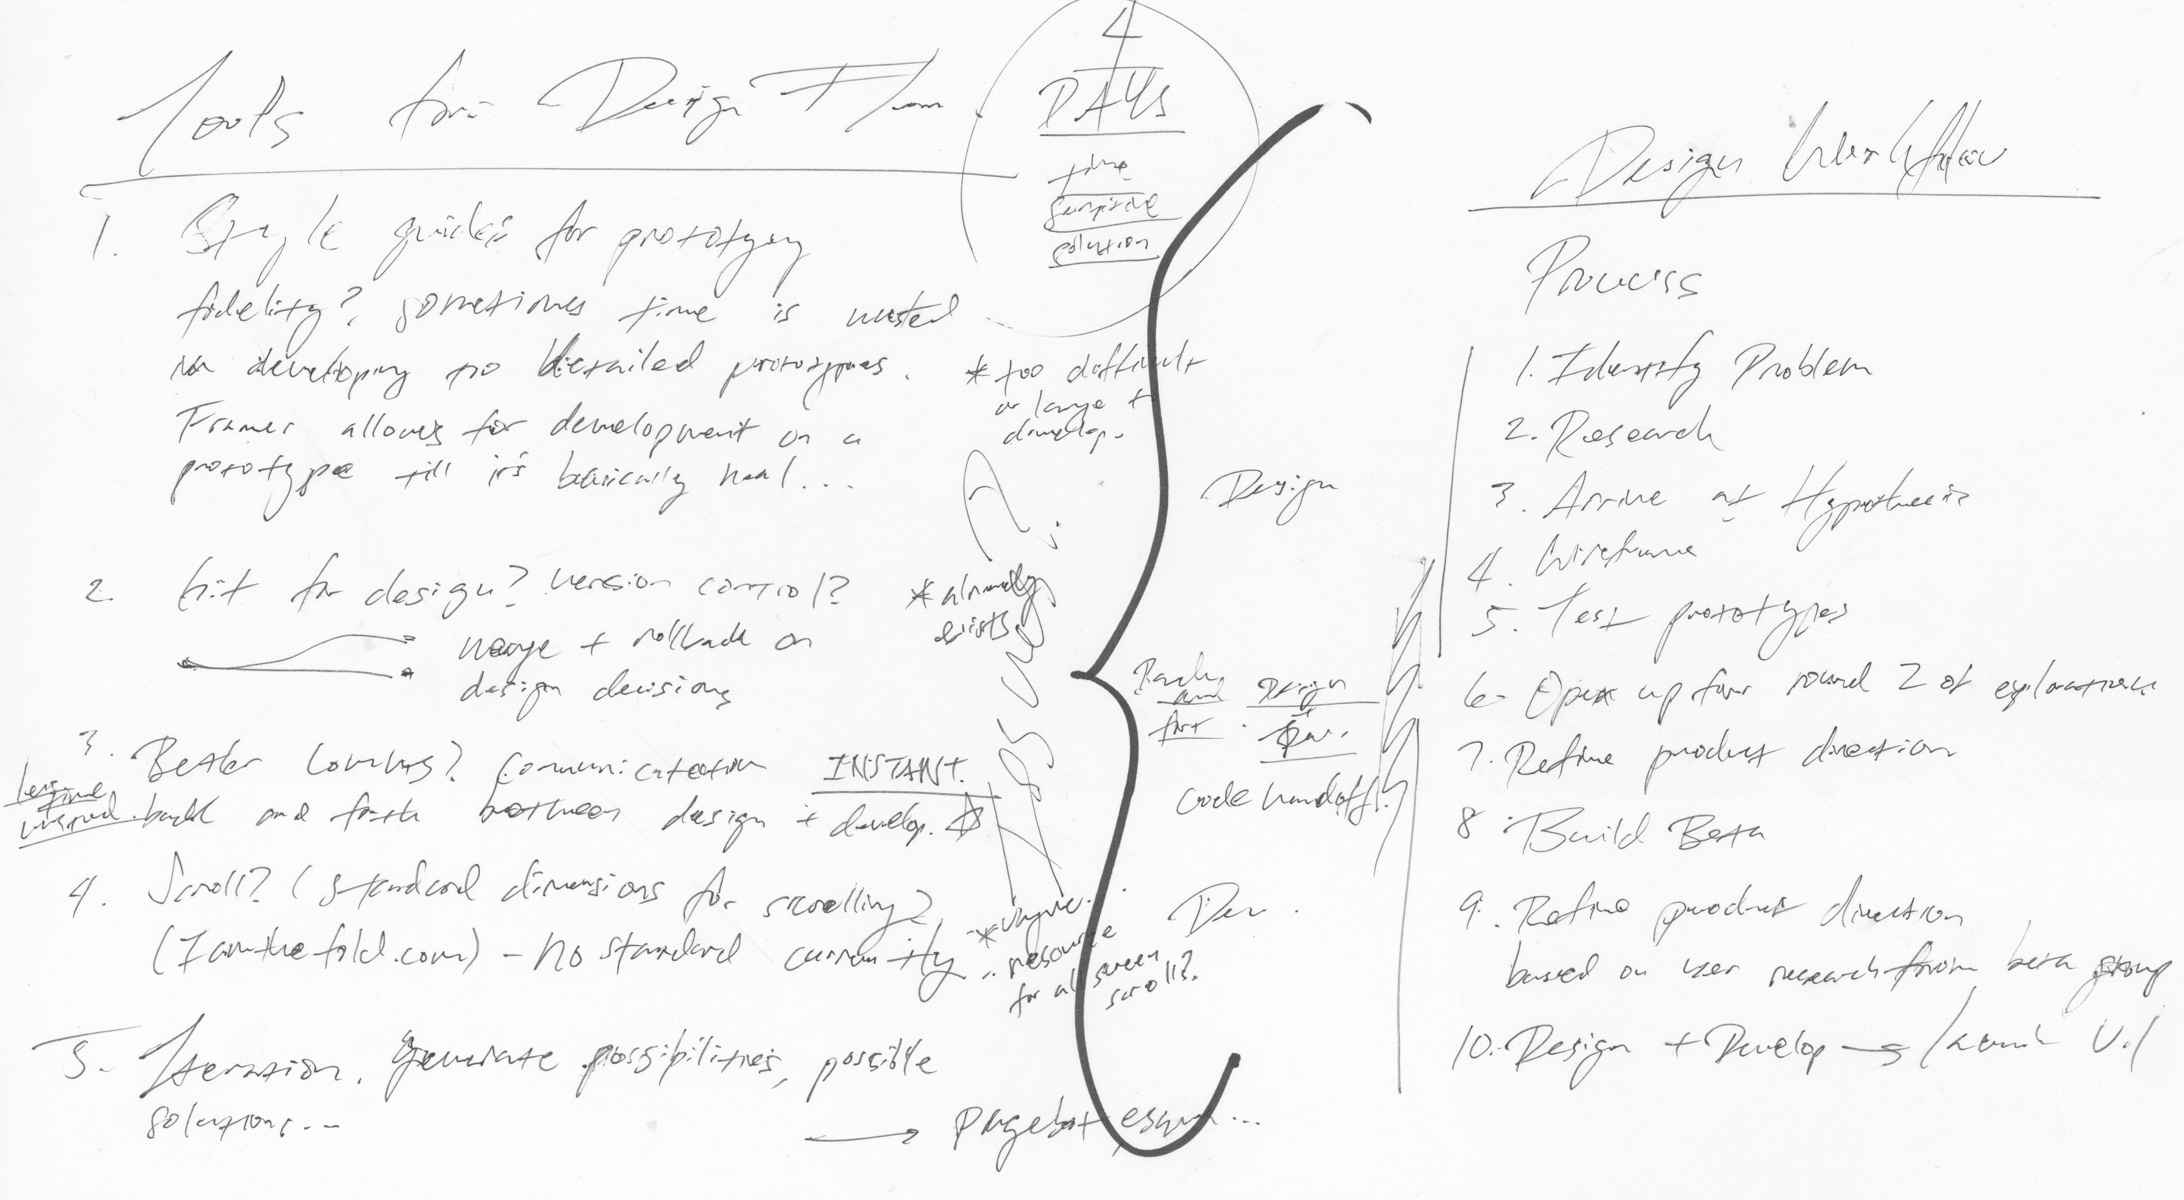 Tools for Design Flow
4
DAYS
time
sensitive
solution
1. Style guides for prototyping
fidelity?, sometimes time is wasted
in developing too detailed prototypes.
Framer allows for development on a
prototype till it's basically real...
* too difficult
or large to
develop.
2. Git for design? version control?
merge + rollback on
design decisions
* already
exists
Issues?
3. Better Comms? Communication INSTANT.
less time
wasted. back and forth between design + develop.
4. Scroll? (standard dimensions for scrolling?
(Iamthefold.com) - No standard currently
* vague.
resource
for all screen
scroll?
5. Iteration. generate possibilities, possible
solutions...
→ Pagebot, esque...
Design
Back
and
forth
Design
Dev.
code handoff.
Dev.
Design Workflow
Process
1. Identify Problem
2. Research
3. Arrive at Hypothesis
4. Wireframe
5. Test prototypes
6. Open up for round 2 of explorations
7. Refine product direction
8. Build Beta
9. Refine product direction
based on user research from beta group
10. Design + Develop → launch V.1